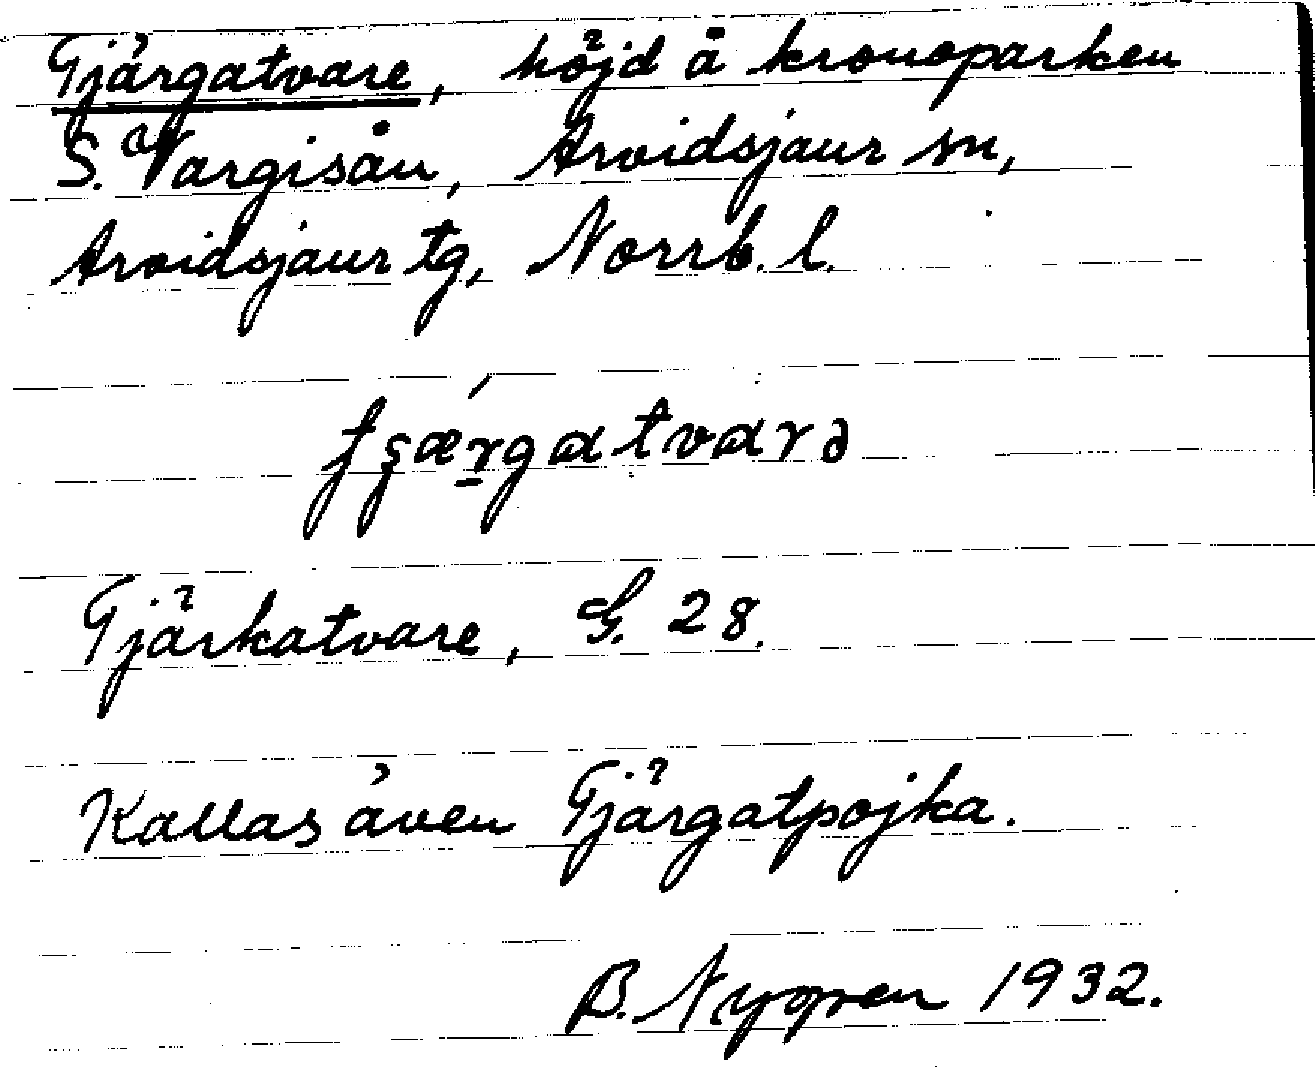 Tjärgatvare, höjd å kronoparken
S. av Vargisån, Arvidsjaur sn,
Arvidsjaur tg, Norrb. l.
Tjärkatvare, G. 28.
Kallas även Tjärgatpojka.
B. Nygren 1932.